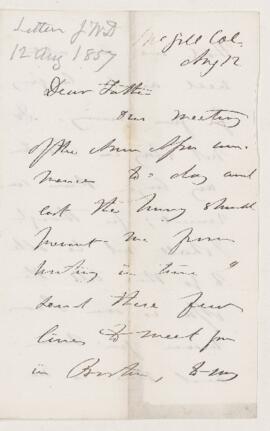 Letter JWD
12 Aug 1857
McGill Col.
Aug 12
Dear Father
Our meeting
of the Amer Assn com-
mences to-day and
lest the hurry should
prevent me from
writing in time I
send these few
lines to meet you
in Boston, & my